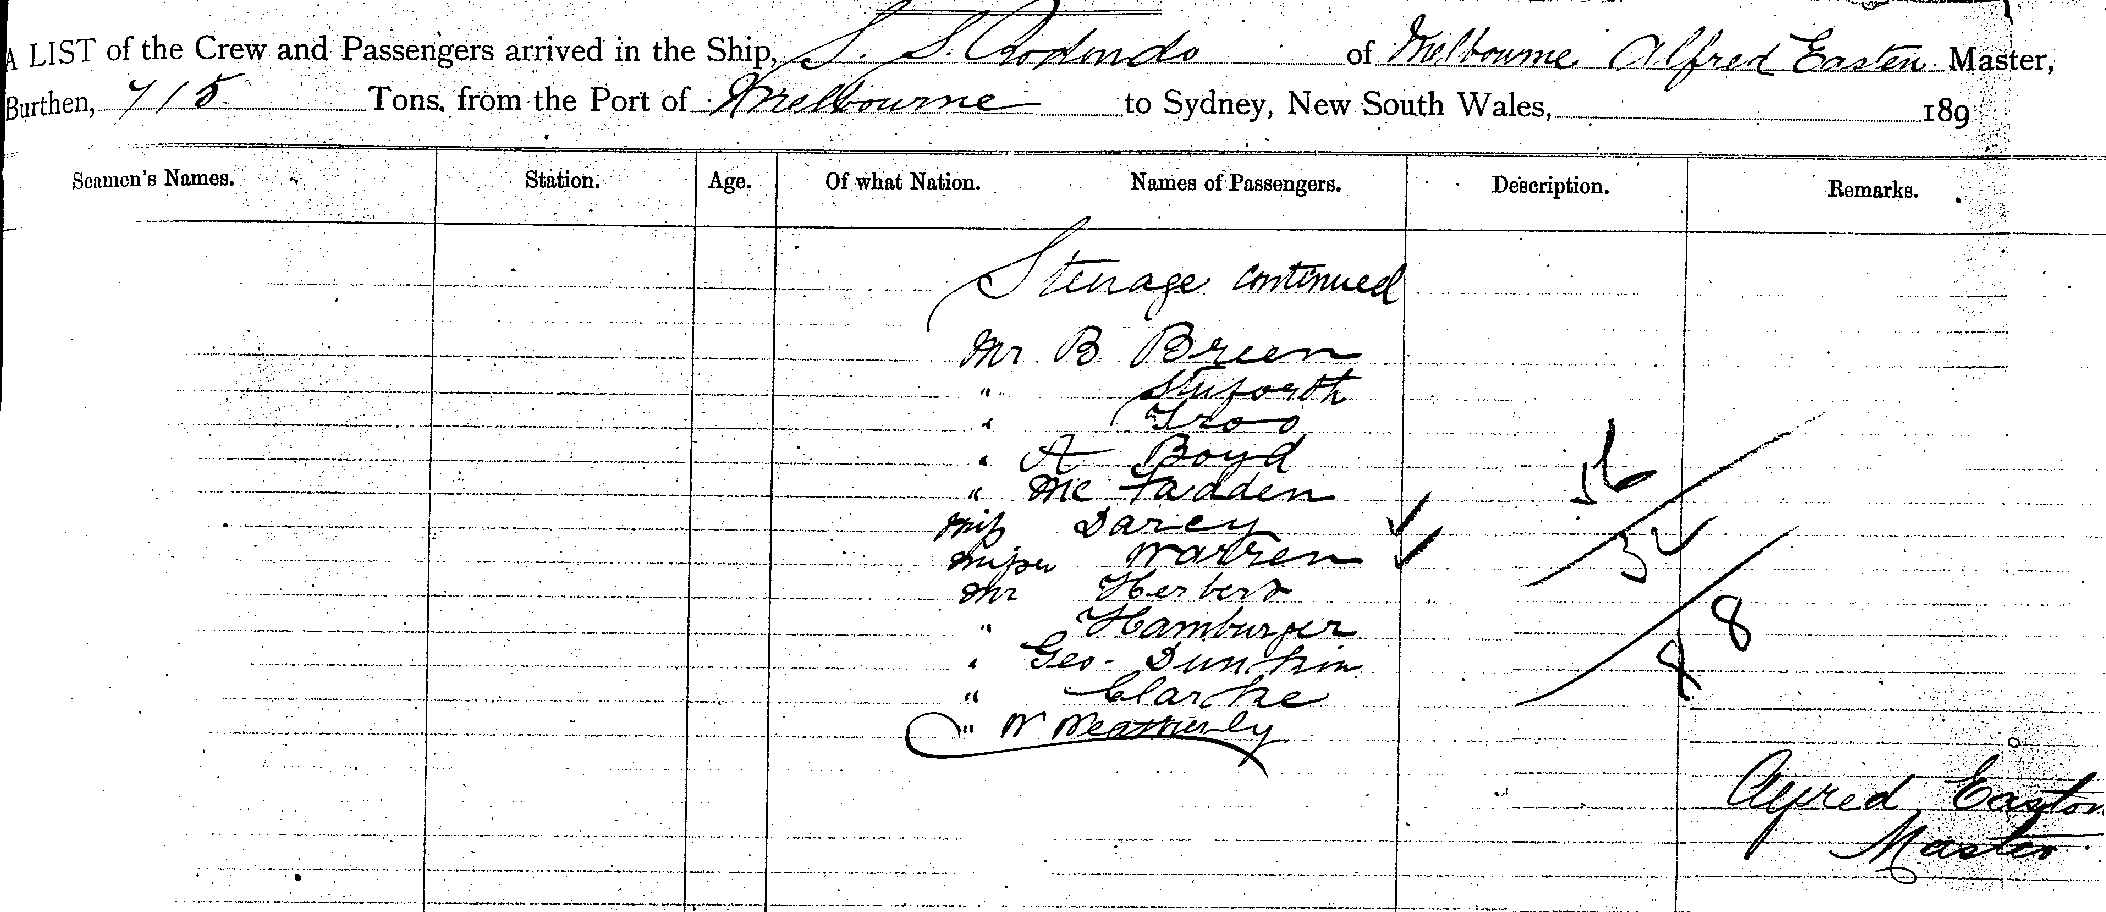 A LIST of the Crew and Passengers arrived in the Ship, S. S. Rodondo of Melbourne Alfred Easton Master,
Burthen, 715 Tons, from the Port of Melbourne to Sydney, New South Wales, 189
Seamen's Names. Station. Age. Of what Nation. Names of Passengers. Description. Remarks.
Steerage continued
Mr B Breen
"
"
" A Boyd
" Mc Fadden
Miss Darcy
Misses Warren
Mr Herbert
" Hamburger
" Geo. Dunkin
" Clarke
" W Weatherly
56
32
88
Alfred Easton
Master